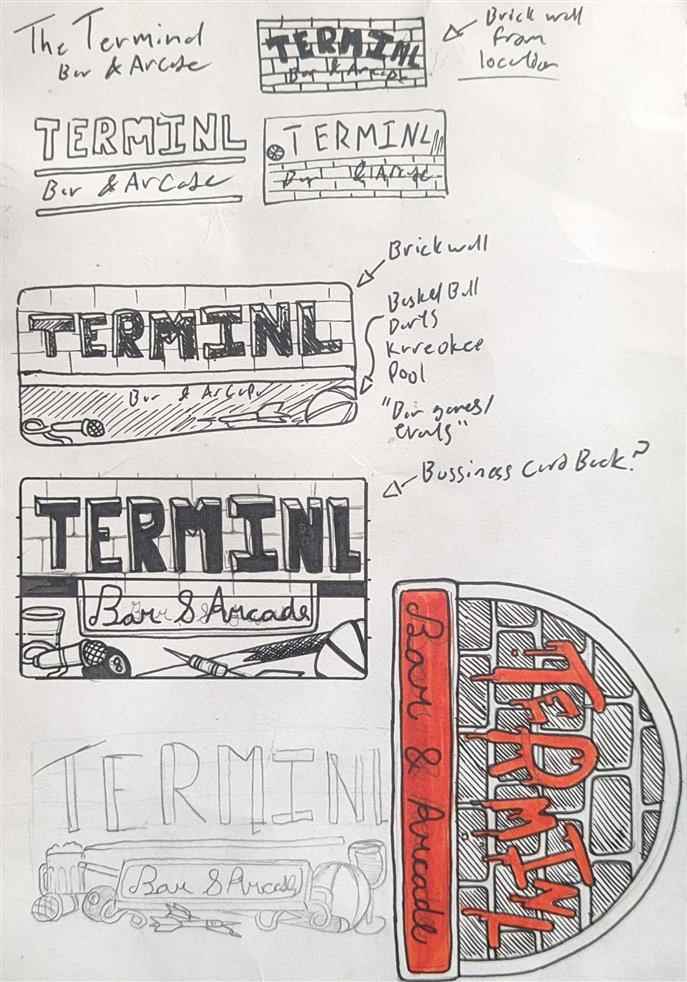 The Terminal
Bar & Arcade
TERMINL
Bar & Arcade
Brick wall
from
location
TERMINL
Bar & Arcade
TERMINL
Bar & Arcade
Brick wall
TERMINL
Bar & Arcade
BasketBall
Darts
Karreokee
Pool
"Bar games/
Bussiness Card Back?
TERMINL
Bar & Arcade
TERMINL
Bar & Arcade
TERMINL
Bar & Arcade